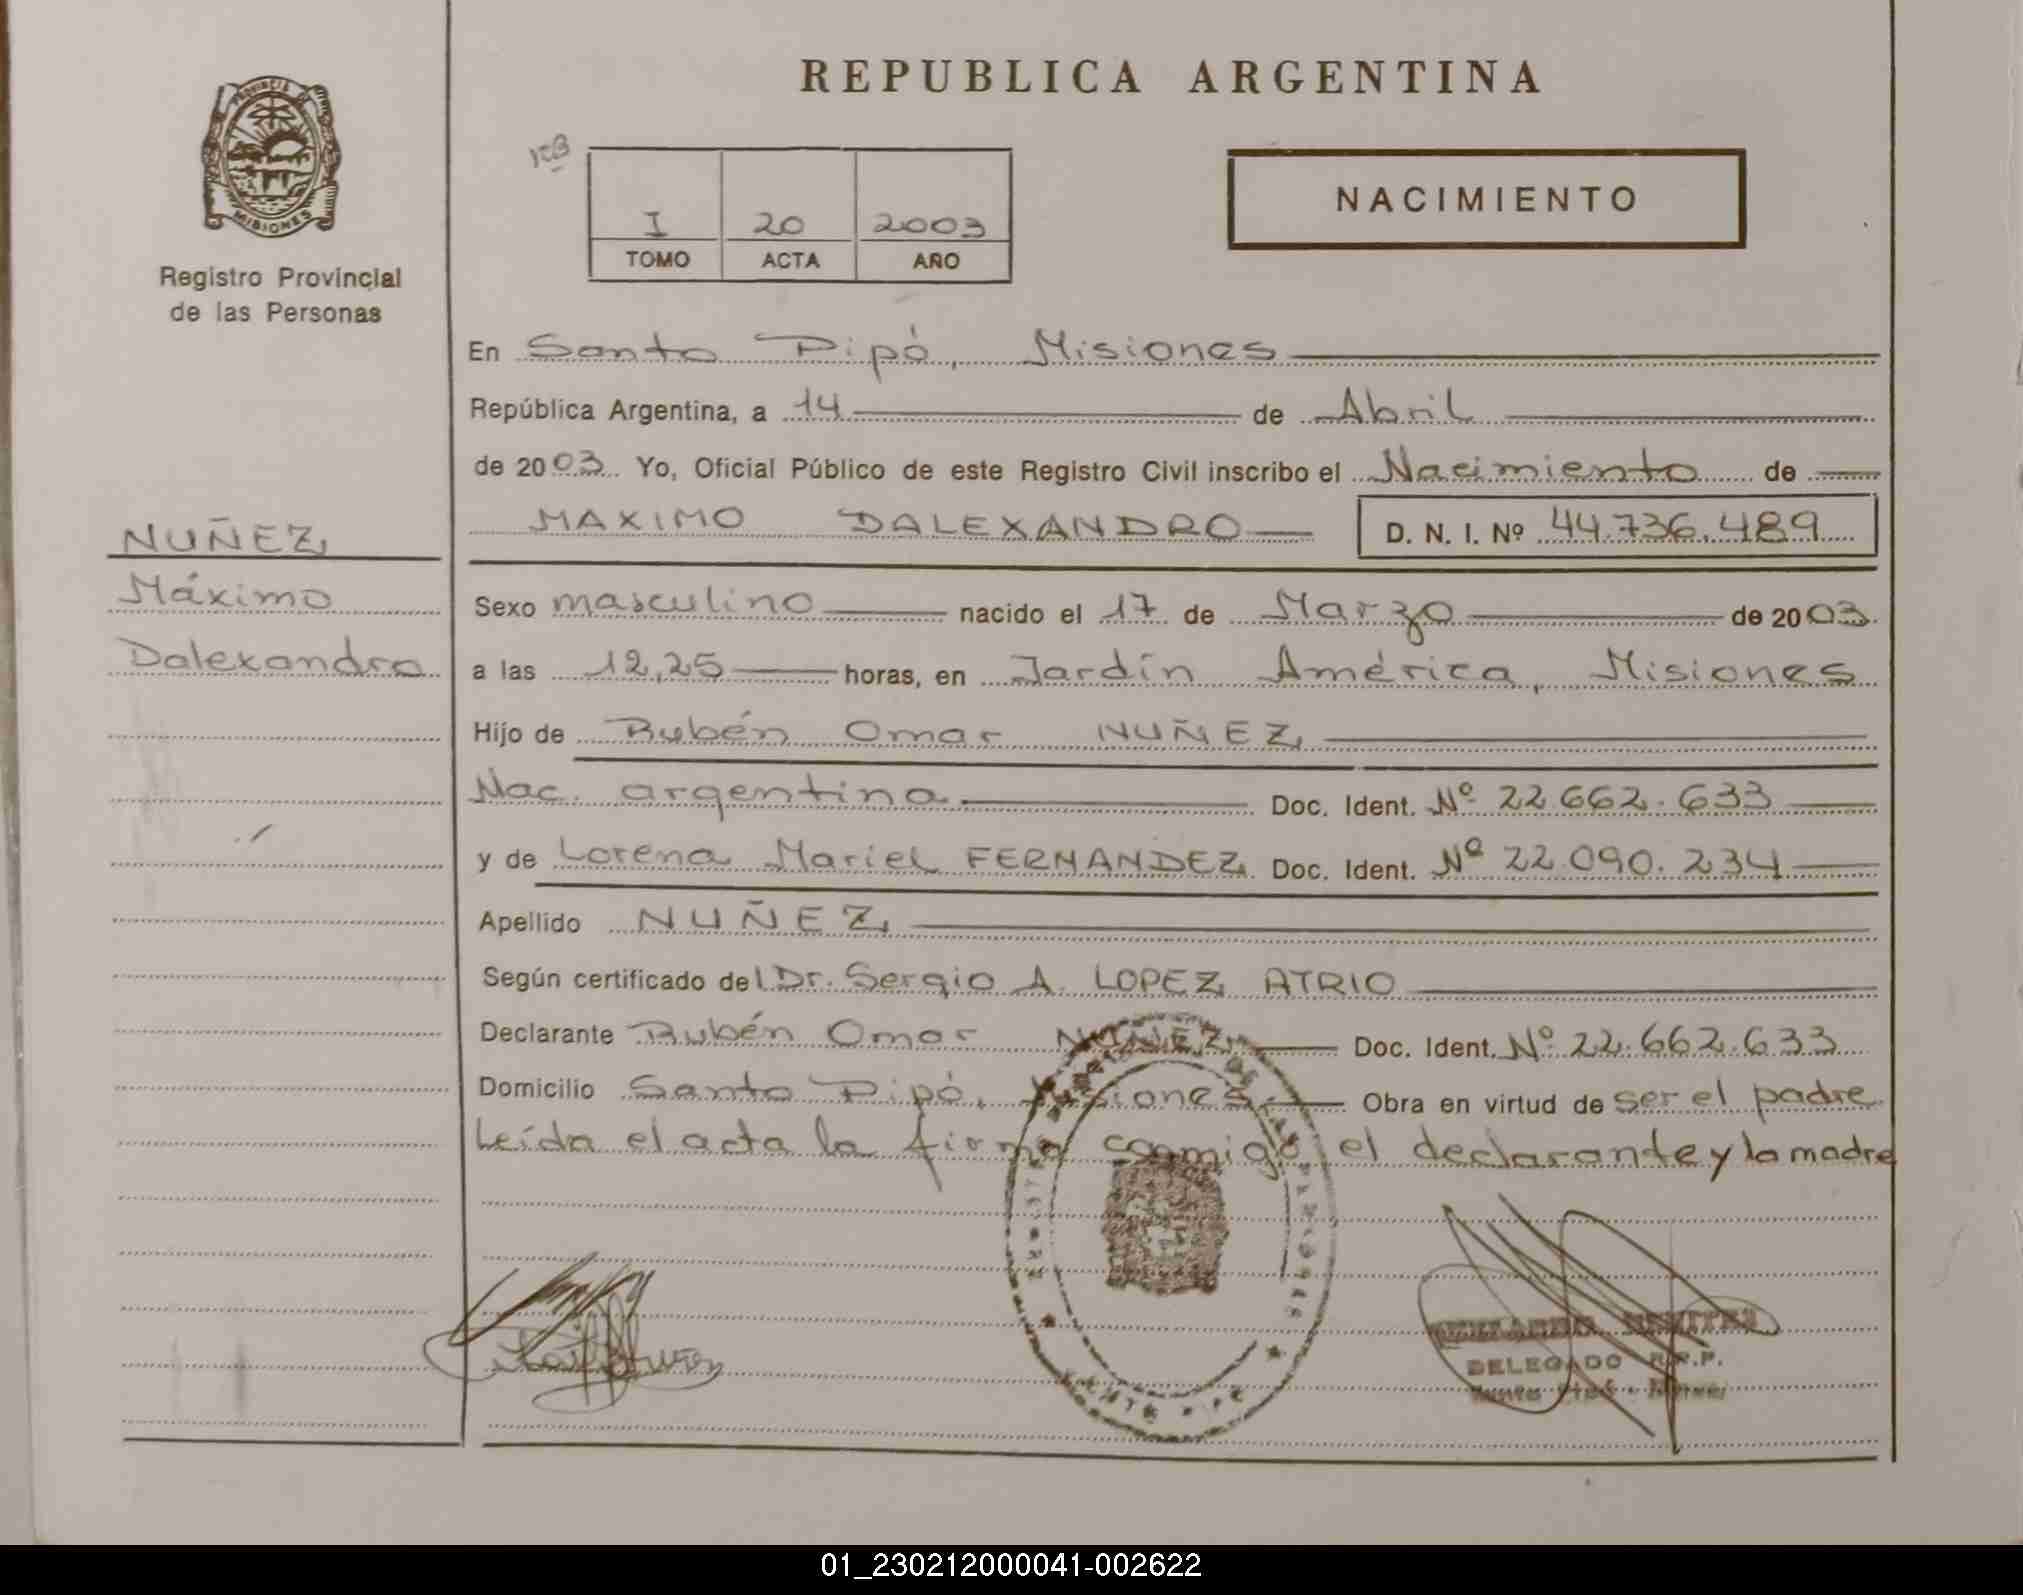 REPUBLICA ARGENTINA
PROVINCIA DE
MISIONES
Registro Provincial
de las Personas
I 20 2003
TOMO ACTA AÑO
NACIMIENTO
En Santo Pipó, Misiones
República Argentina, a 14 de Abril
de 2003. Yo, Oficial Público de este Registro Civil inscribo el Nacimiento de
MAXIMO DALEXANDRO D. N. I. Nº 44.736.489
NUÑEZ
Máximo
Dalexandro
Sexo masculino nacido el 17 de Marzo de 2003.
a las 12,25 horas, en Jardín América, Misiones
Hijo de Rubén Omar NUÑEZ
Nac. argentina Doc. Ident. Nº 22.662.633
y de Lorena Mariel FERNANDEZ Doc. Ident. Nº 22.090.234
Apellido NUÑEZ
Según certificado del Dr. Sergio A. LOPEZ ATRIO
Declarante Rubén Omar NUÑEZ Doc. Ident. Nº 22.662.633
Domicilio Santo Pipó, Misiones. Obra en virtud de ser el padre
Leída el acta la firma conmigo el declarante y la madre
DELEGADO R.P.P.
01_230212000041-002622